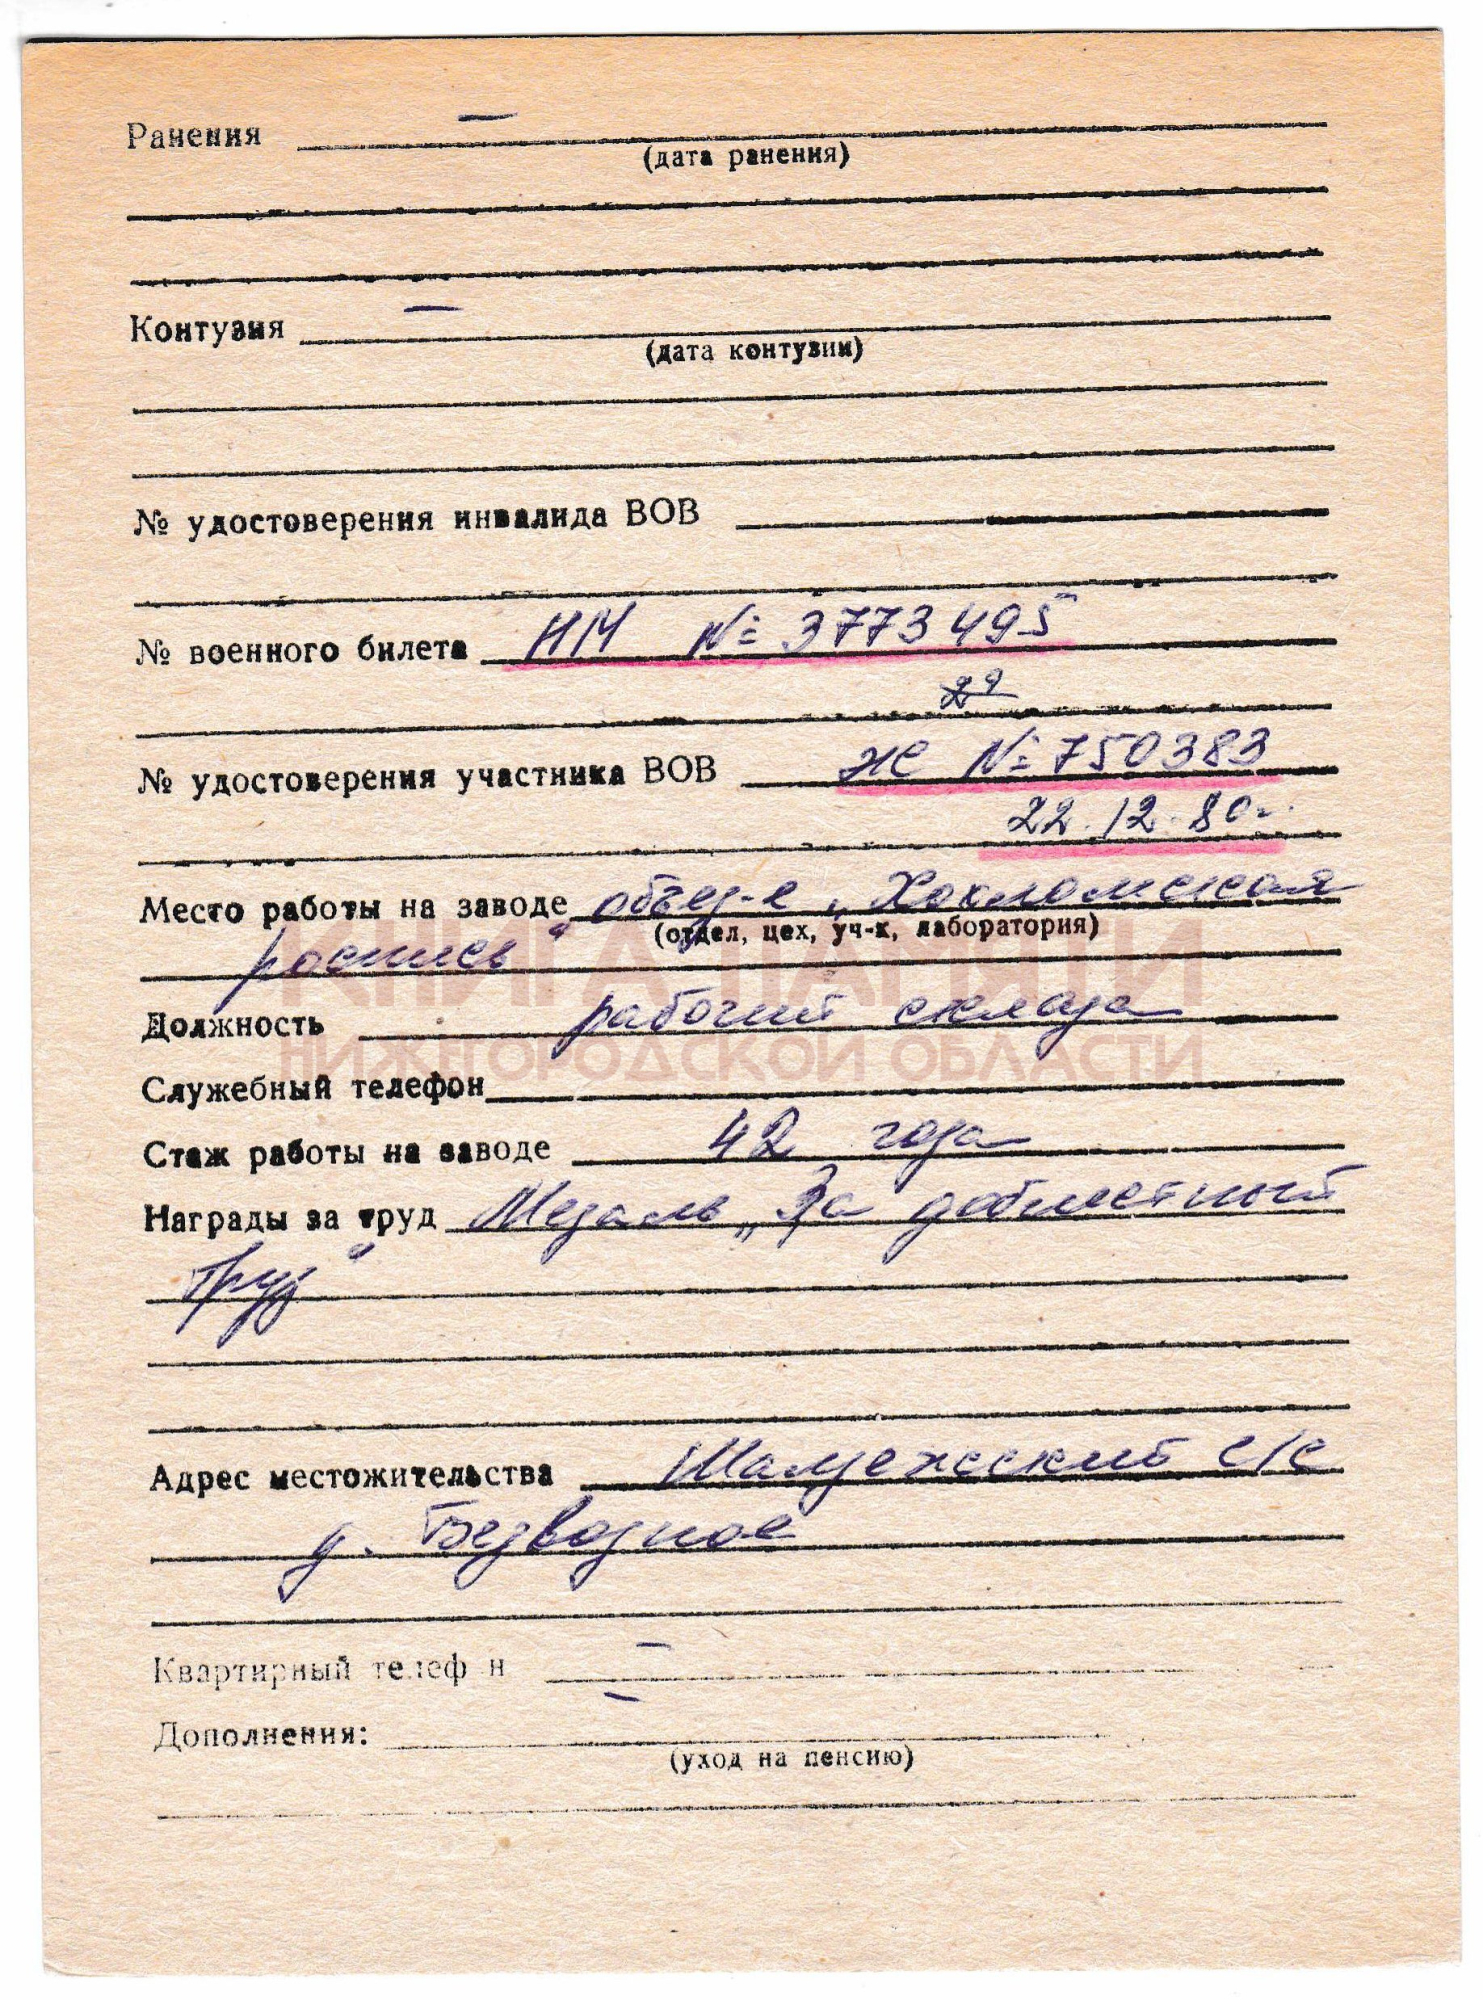 Ранения —
(дата ранения)
Контузия —
(дата контузии)
№ удостоверения инвалида ВОВ
№ военного билета НМ №: 3773495
№ удостоверения участника ВОВ ЖС №: 750383
22.12.80г.
Место работы на заводе объед-е „Хохломская
(отдел, цех, уч-к, лаборатория)
роспись“
КНИГА ПАМЯТИ
Должность рабочий склада
НИЖЕГОРОДСКОЙ ОБЛАСТИ
Служебный телефон
Стаж работы на заводе 42 года
Награды за труд Медаль „За доблестный
труд“
Адрес местожительства с/с
д. Безводное
Квартирный телеф н —
Дополнения: —
(уход на пенсию)